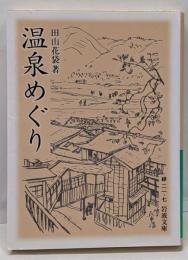 田山花袋著
温泉めぐり
緑二一-七 岩波文庫